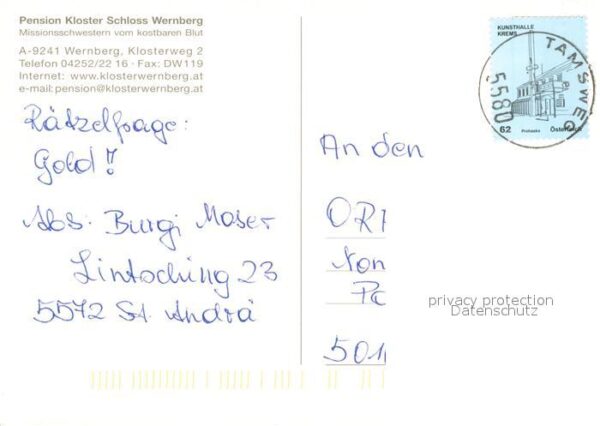 Pension Kloster Schloss Wernberg
Missionsschwestern vom kostbaren Blut
A-9241 Wernberg, Klosterweg 2
Telefon 04252/22 16 · Fax: DW119
Internet: www.klosterwernberg.at
e-mail: pension@klosterwernberg.at
Rätzelfrage:
Gold!
Abs. Burgi Moser
Lintsching 23
5572 St. Andrä
KUNSTHALLE
KREMS
62 Österreich
TAMSWEG
5580
An den
ORF
501
privacy protection
Datenschutz